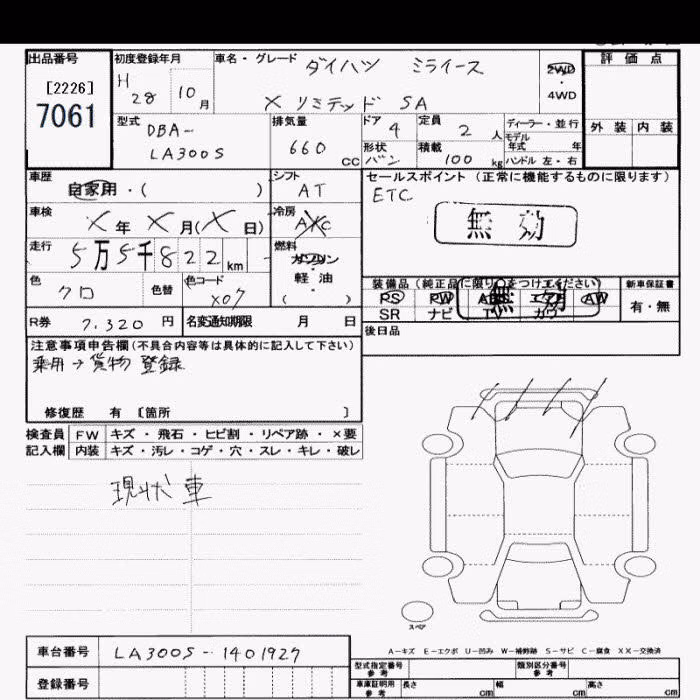 出品番号 初度登録年月 車名・グレード ダイハツ ミライース 評価点
[2226] H 28 10月 2WD・4WD
7061 X リミテッド SA
型式 DBA- 排気量 ドア 4 定員 2人 ディーラー・並行 外装 内装
モデル年式 年
LA300S 660 CC 形状 バン 積載 100kg ハンドル 左・右
車歴 シフト セールスポイント (正常に機能するものに限ります)
自家用・( ) AT ETC
車検 X年 X月(X日) 冷房 A/C 無効
走行 5万5千822km 燃料 ガソリン・軽油( )
色 クロ 色替 色コード X07 装備品(純正品に限り○をつけてください) 新車保証書
PS PW ABS エアB AW 有・無
無効
SR ナビ TV カワ
R券 7,320円 名変通知期限 月 日 後日品
注意事項申告欄(不具合内容等は具体的に記入して下さい)
乗用→貨物 登録
修復歴 有 [箇所 ]
検査員 FW キズ・飛石・ヒビ割・リペア跡・×要
記入欄 内装 キズ・汚レ・コゲ・穴・スレ・キレ・破レ
現状車
スペア
A-キズ E-エクボ U-凹み W-補修跡 S-サビ C-腐食 XX-交換済
車台番号 LA300S-1401927 型式指定番号 参考 類別区分番号 参考
登録番号 車庫証明用 参考 長さ cm 幅 cm 高さ cm